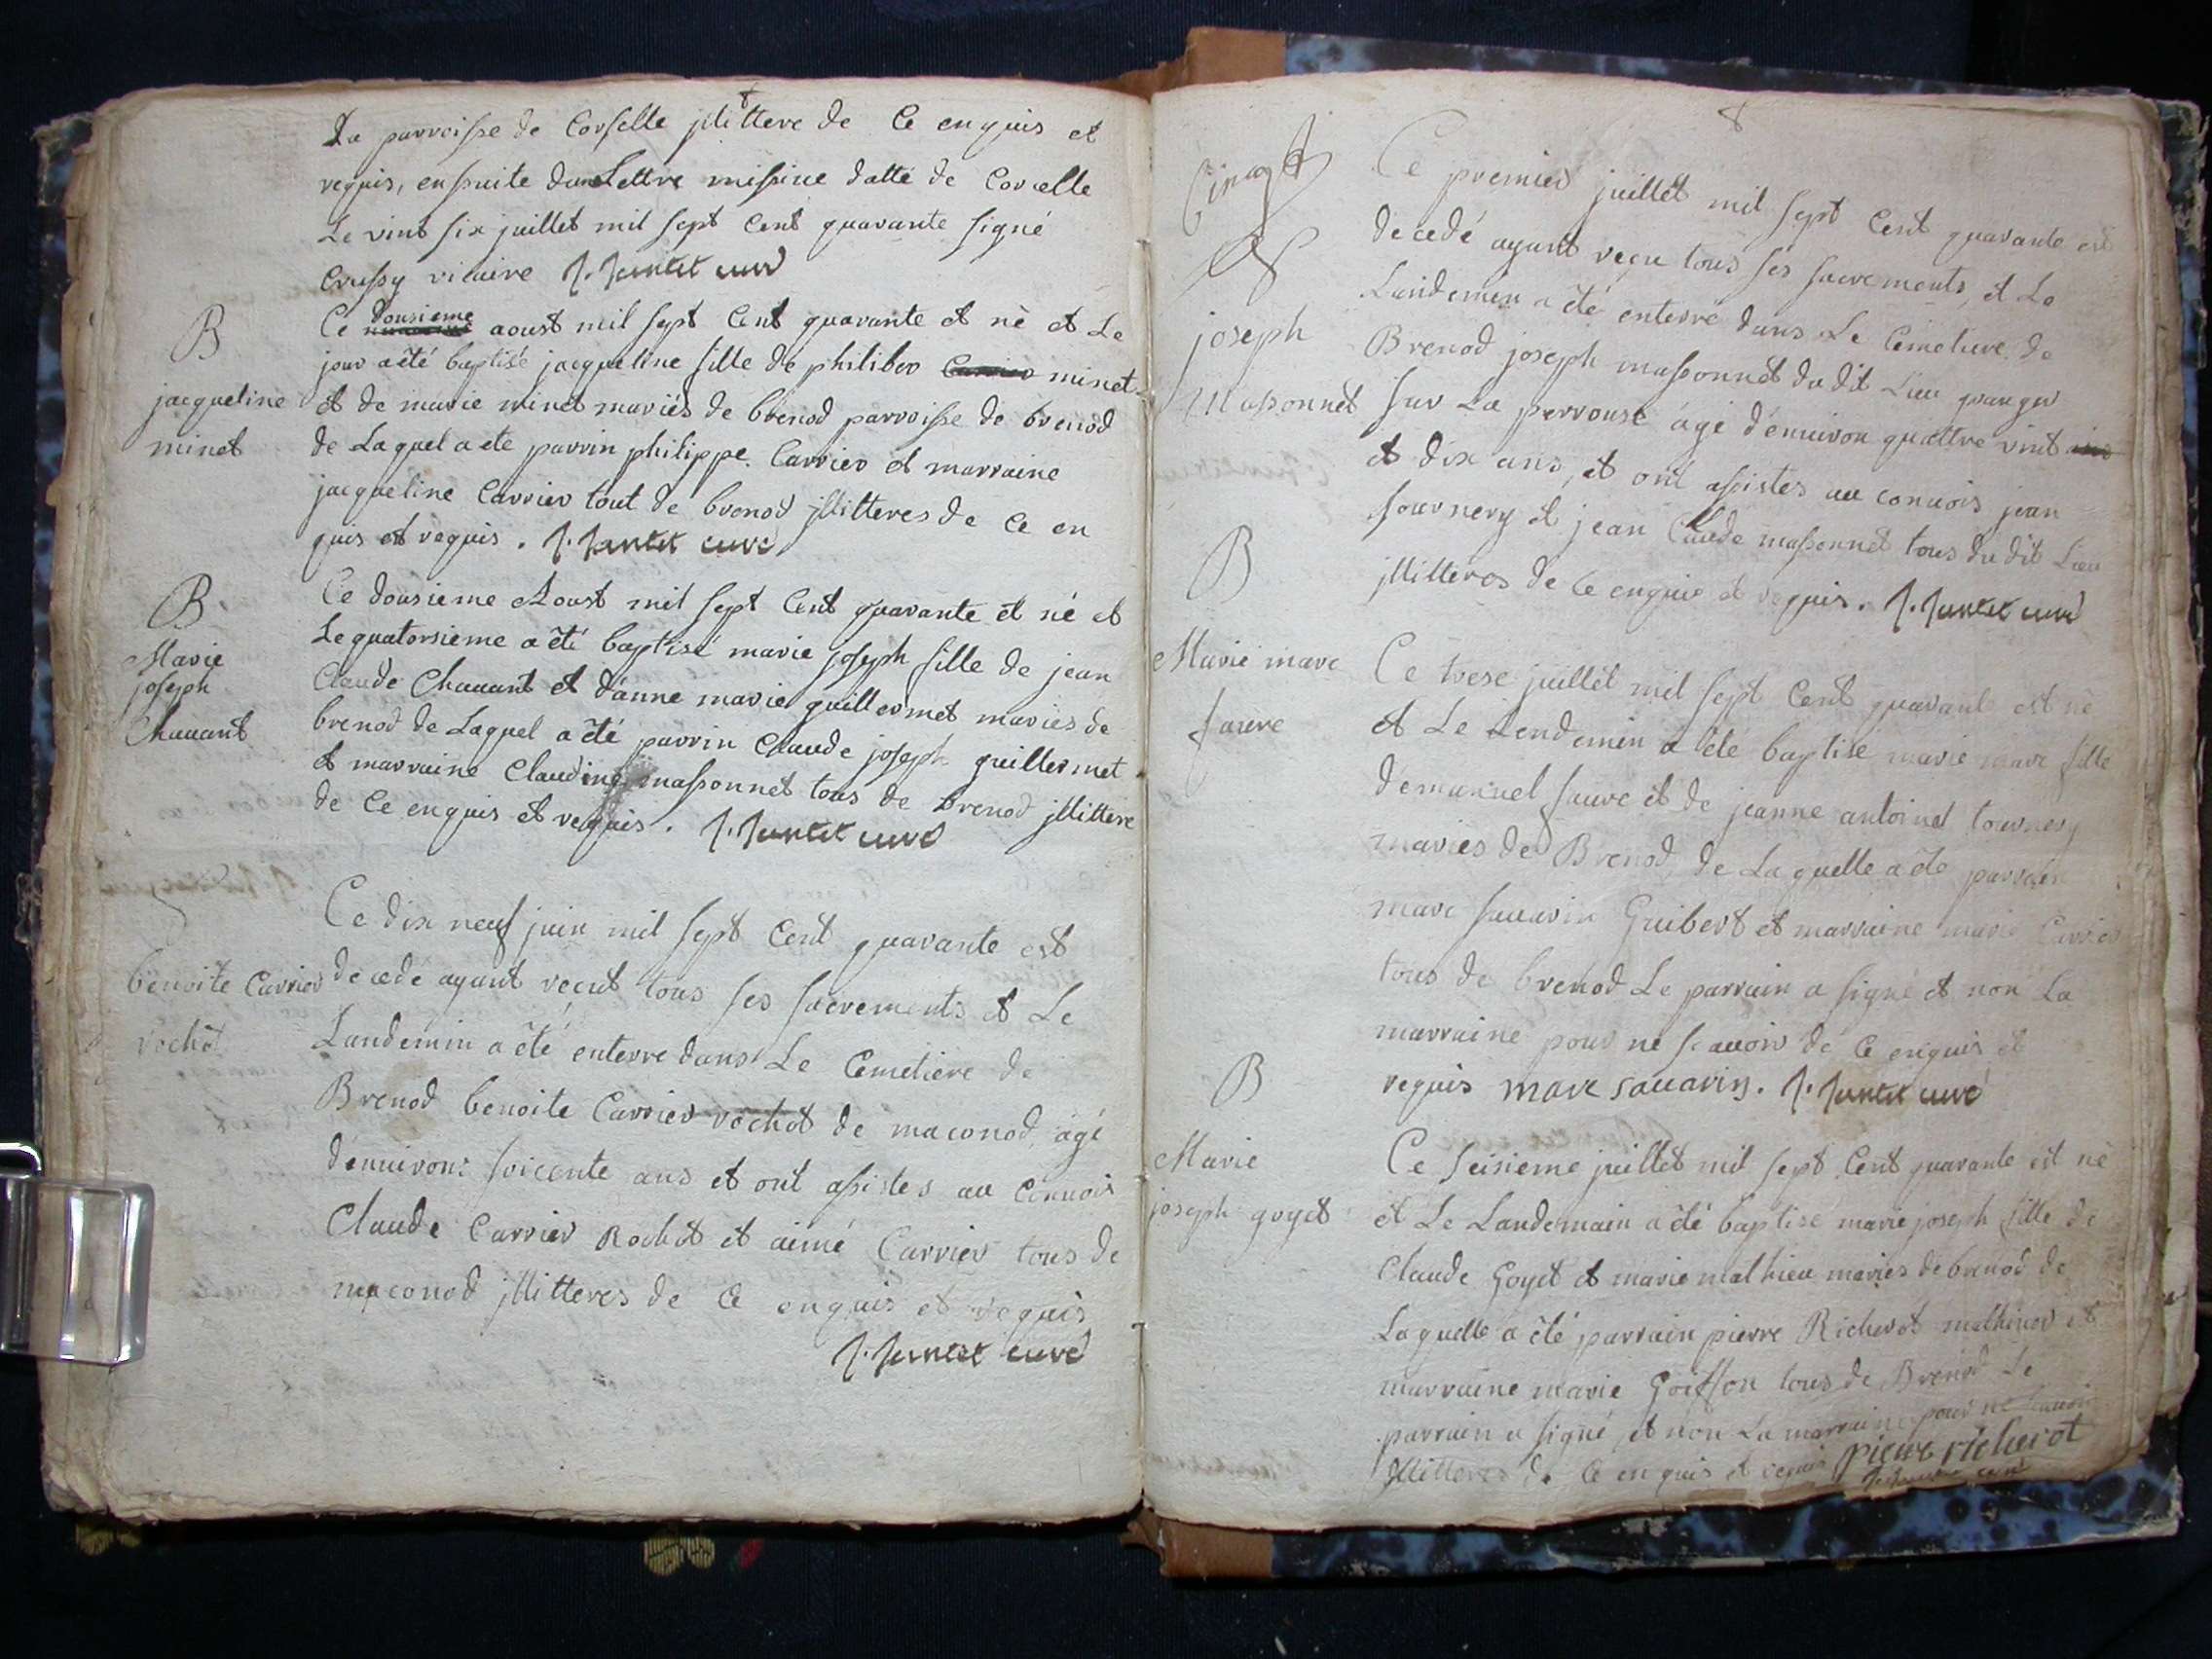 La parroisse de Corselle jllittere de Ce enquis et
requis, ensuite dune Lettre missive datté de Corcelle
Le vint six juillet mil sept Cent quarante signé
Crussy vicaire J. Jantet curé
B
jacqueline
minet
Ce dousieme aoust mil sept Cent quarante et né et Le
jour a été baptisé jacqueline fille de philiber Carrier minet
et de marie minet mariés de brenod parroisse de brenod
de Laquel a ete parrin philippe Carrier et marraine
jacqueline Carrier tout de brenod jllitteres de Ce en
quis et requis. J. Jantet curé
B
Marie
joseph
Chauant
Ce dousieme Aoust mil sept Cent quarante et né et
Le quatorsieme a été baptisé marie joseph fille de jean
Claude Chauant et d'anne marie guillermet mariés de
brenod de Laquel a été parrin Claude joseph guillermet
et marraine Claudine massonnet tous de brenod jllittere
de Ce enquis et requis. J. Jantet curé
benoite Carrier
rochot
Ce dix neuf juin mil sept Cent quarante est
decedé ayant recut tous ses sacrements et Le
Landemin a été enterre dans Le Cemetiere de
Brenod benoite Carrier rochot de maconod agé
d'enuirons soicente ans et ont assistes au Conuois
Claude Carrier Rochot et aimé Carrier tous de
maconod jllitteres de Ce enquis et requis
J. Jantet curé
8
joseph
Massonnet
Ce premier juillet mil sept Cent quarante est
decedé ayant reçu tous ses sacrements, et Le
Landemin a été enterré dans Le Cemetiere de
Brenod joseph massonnet du dit Lieu granger
sur La perrouse agé d'enuiron quattre vint ans
et dix ans, et ont assistes au conuois jean
tournery et jean Claude massonnet tous du dit Lieu
jllitteres de Ce enquis et requis. J. Jantet curé
B
Marie marc
faure
Ce trese juillet mil sept Cent quarante est né
et Le Lendemin a été baptisé marie marc fille
d'emanuel faure et de jeanne antoinet tournery
mariés de Brenod, de Laquelle a été parrain
marc sauarin Guibert et marraine marie Carrier
tous de brenod Le parrain a signé et non La
marraine pour ne scauoir de Ce enquis et
requis marc sauarin. J. Jantet curé
B
Marie
joseph goyet
Ce seisieme juillet mil sept Cent quarante est né
et Le Landemain a été baptisé marie joseph fille de
Claude Goyet et marie mathieu mariés de brenod de
Laquelle a été parrain pierre Richerot et
marraine marie Goiffon tous de Brenod Le
parrain a signé, et non La marraine pour ne scauoir
jllitteres de Ce enquis et requis pierre richerot